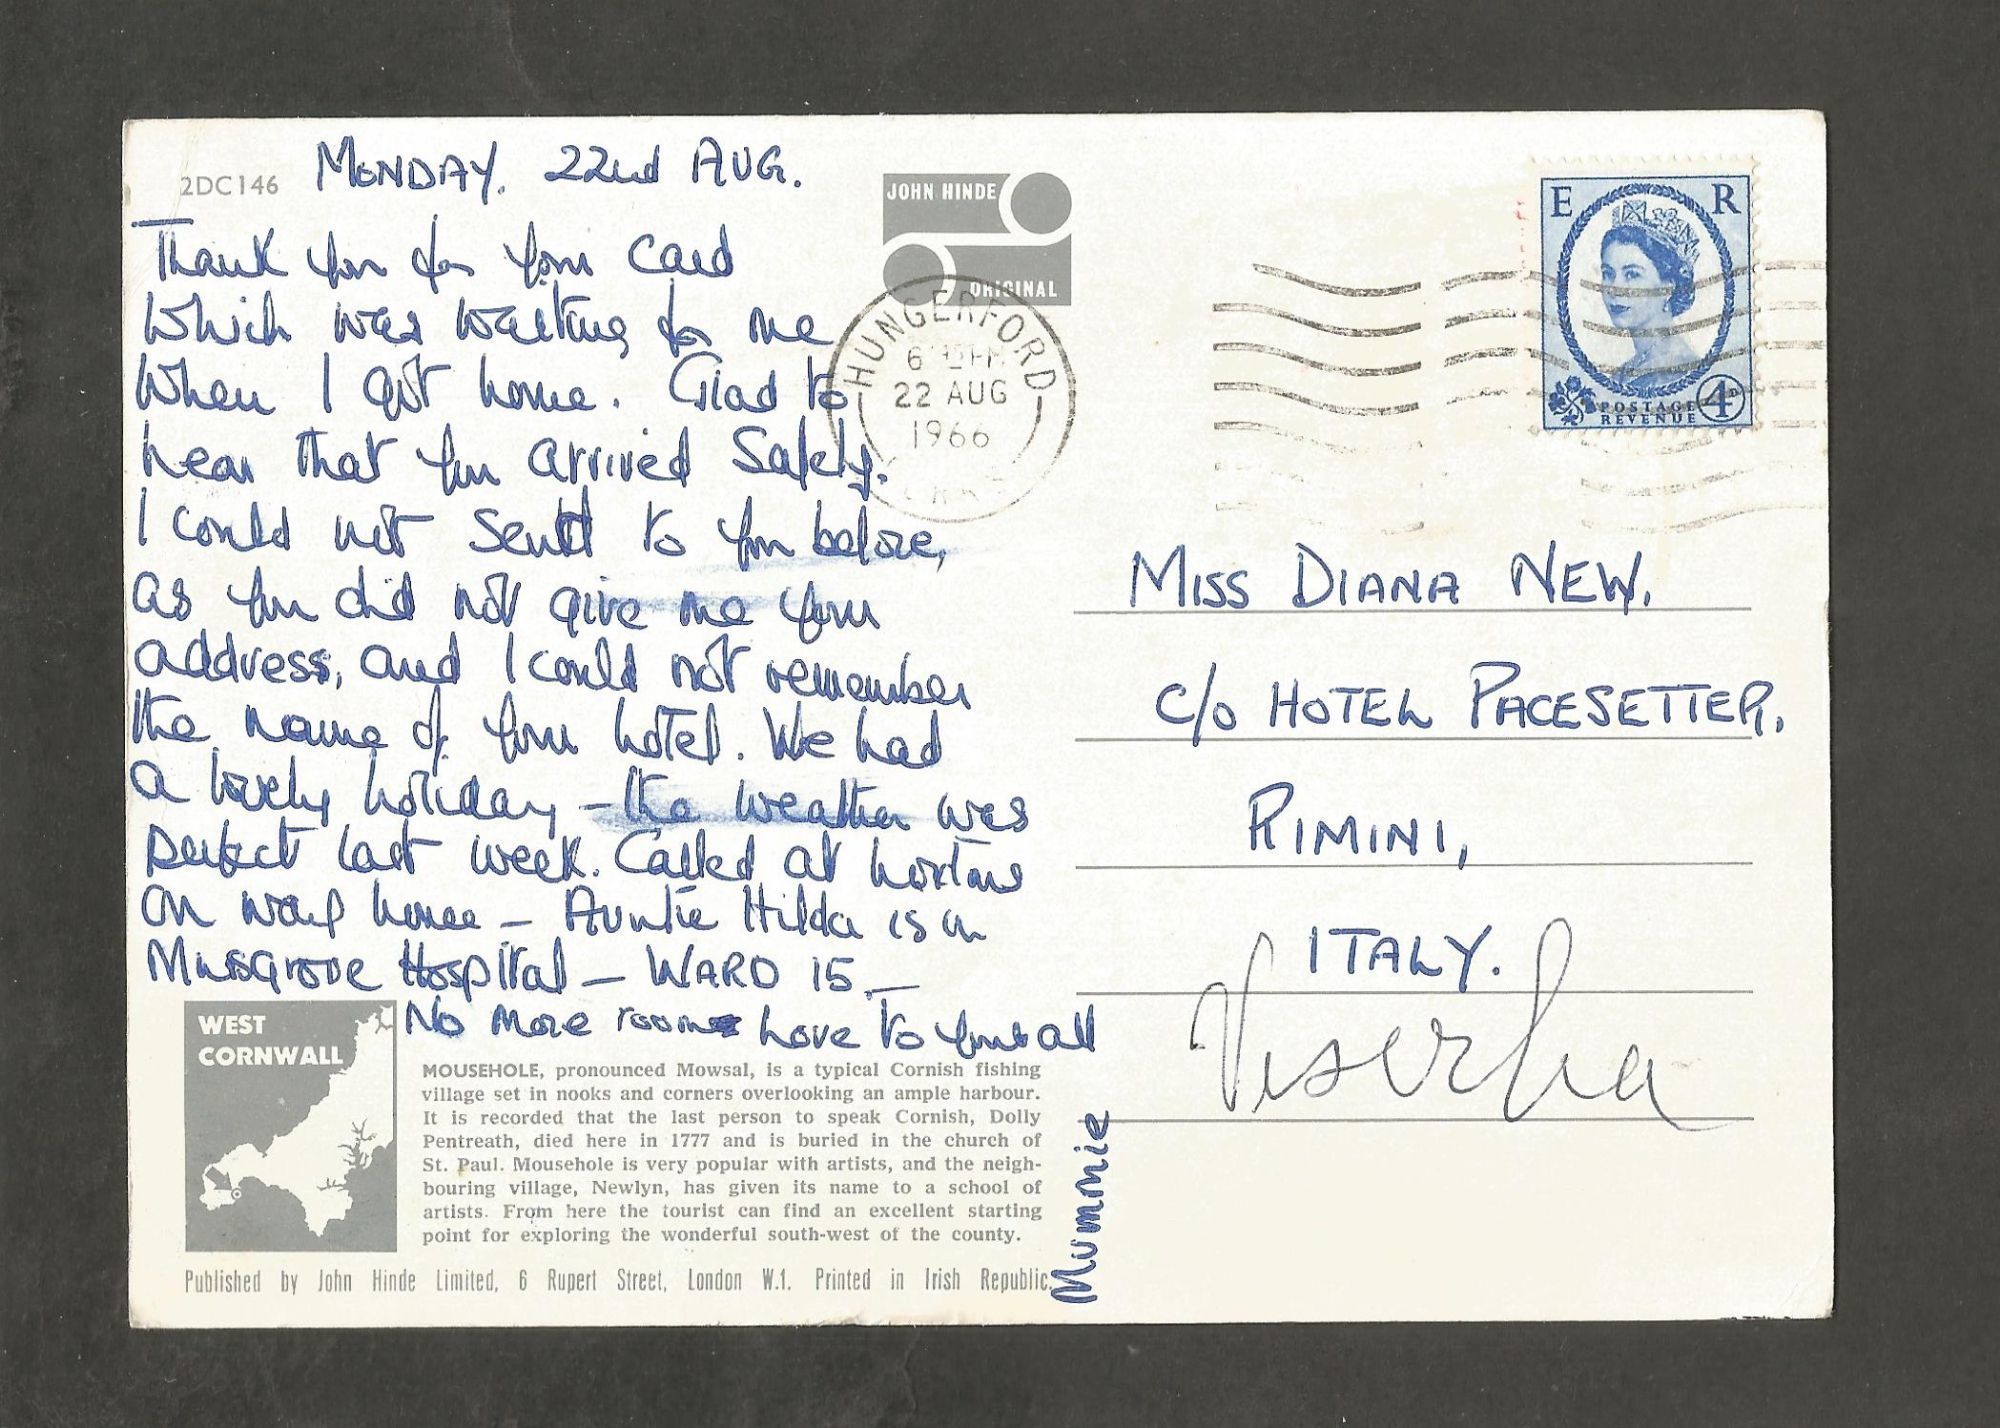 2DC146
MONDAY. 22nd AUG.
Thank you for your card
which was waiting for me
when I got home. Glad to
hear that you arrived safely.
I could not send to you before,
as you did not give me your
address, and I could not remember
the name of your hotel. We had
a lovely holiday - the weather was
perfect last week. Called at
on way home - Auntie Hilda is in
Musgrove Hospital - WARD 15 -
No more room Love to you all
Mummie
JOHN HINDE
ORIGINAL
HUNGERFORD
22 AUG
1966
E R
POSTAGE
REVENUE
4D
MISS DIANA NEW.
C/o HOTEL PACESETTER,
RIMINI,
ITALY.
Viserba
WEST
CORNWALL
MOUSEHOLE, pronounced Mowsal, is a typical Cornish fishing
village set in nooks and corners overlooking an ample harbour.
It is recorded that the last person to speak Cornish, Dolly
Pentreath, died here in 1777 and is buried in the church of
St. Paul. Mousehole is very popular with artists, and the neigh-
bouring village, Newlyn, has given its name to a school of
artists. From here the tourist can find an excellent starting
point for exploring the wonderful south-west of the county.
Published by John Hinde Limited, 6 Rupert Street, London W.1. Printed in Irish Republic.